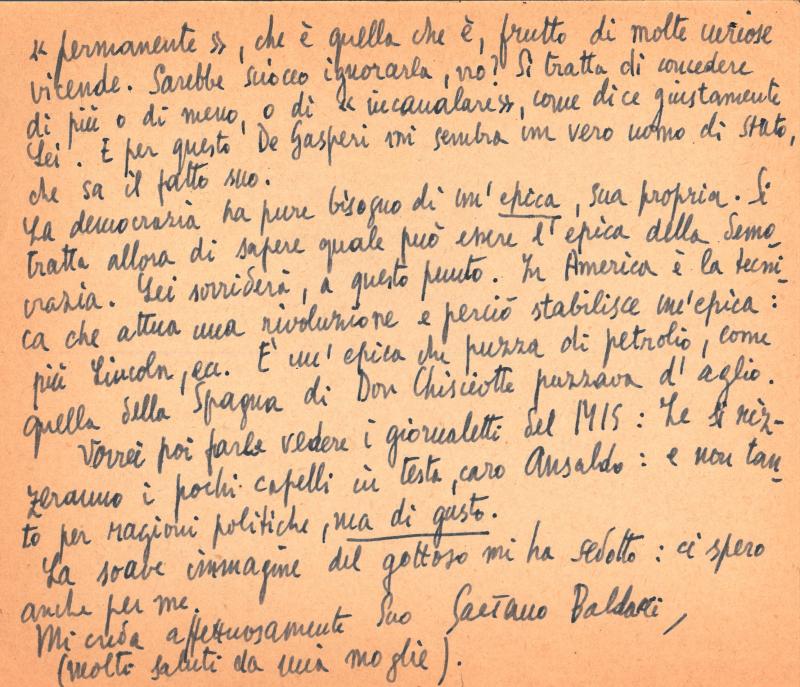 « permanente », che è quella che è, frutto di molte curiose
vicende. Sarebbe sciocco ignorarla, no? Si tratta di concedere
di più o di meno, o di « incanalare », come dice giustamente
Lei. E per questo De Gasperi mi sembra un vero uomo di stato,
che sa il fatto suo.
La democrazia ha pure bisogno di un'epica, sua propria. Si
tratta allora di sapere quale può essere l'epica della demo
crazia. Lei sorriderà, a questo punto. In America è la tecni-
ca che attua una rivoluzione e perciò stabilisce un'epica:
più Lincoln, ecc. È un'epica che puzza di petrolio, come
quella della Spagna di Don Chisciotte puzzava d'aglio.
Vorrei poi farle vedere i giornaletti del MIS: Le si riz-
zeranno i pochi capelli in testa, caro Ansaldo: e non tan-
to per ragioni politiche, ma di gusto.
La soave immagine del gottoso mi ha sedotto: ci spero
anche per me.
Mi creda affettuosamente Suo Gaetano Baldacci,
(molti saluti da mia moglie).